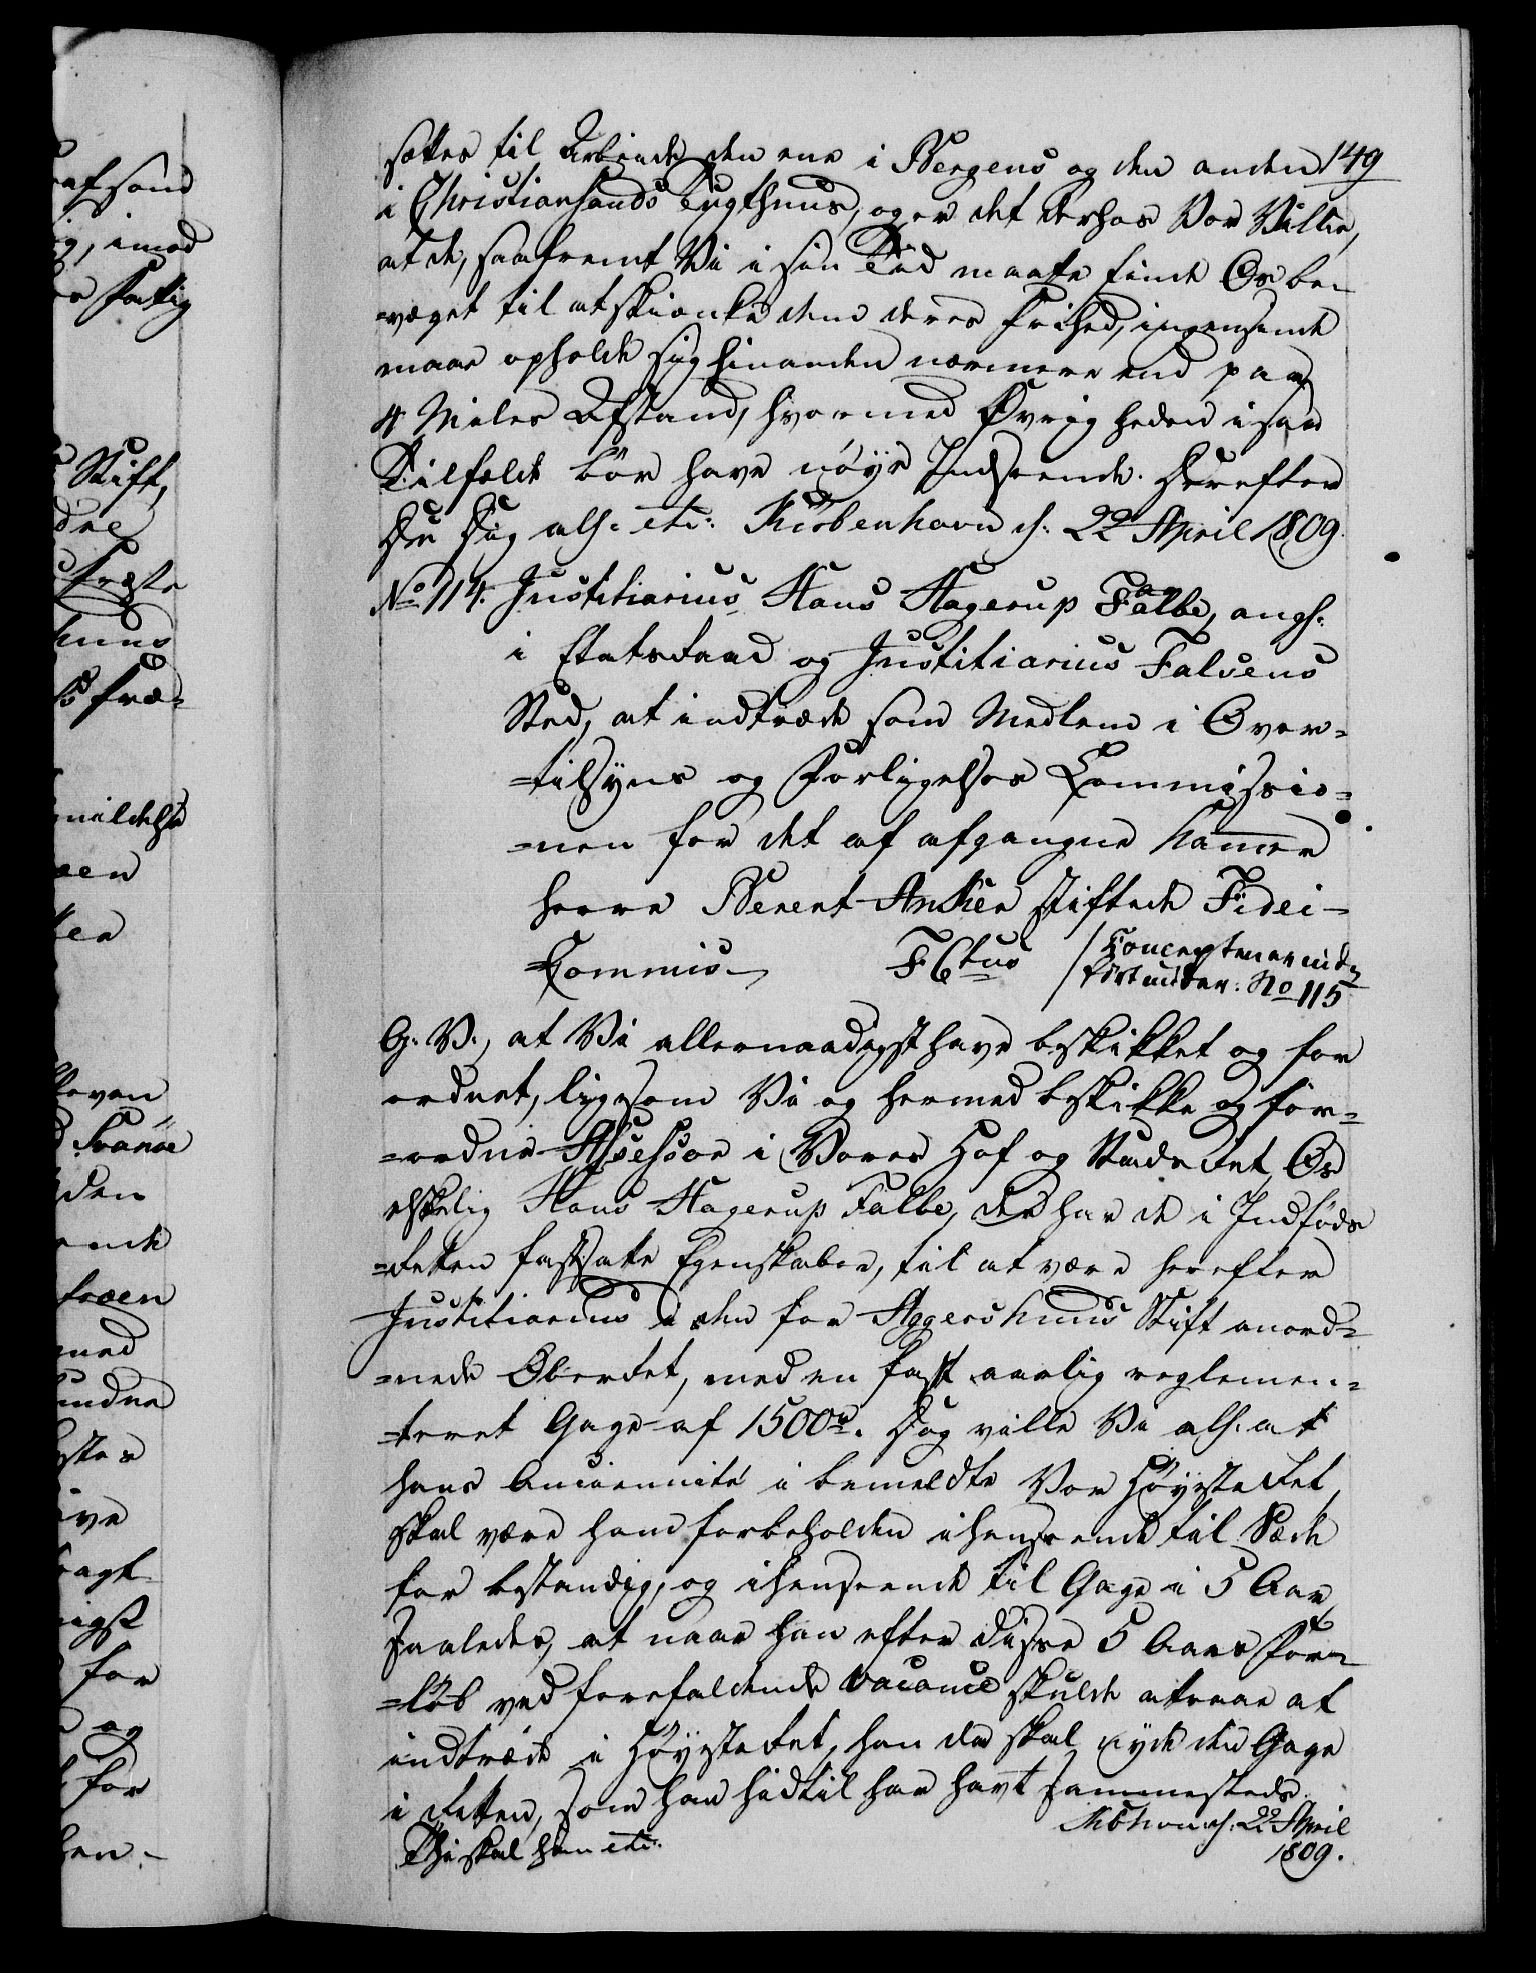 149
sættes til Arbeide, den ene i Bergens og den anden
i Christiansands Tugthuus, og er det derhos Vor Villie,
at de, saafremt Vi i sin Tiid maatte finde Os be-
=væget til at skienke dem deres Friehed, ingensinde
maae opholde sig hinanden nærmere end paa
4 Miles Afstand, hvormed Øvrigheden i saa
Tilfælde bør have nøye Indseende. Derefter
Du Dig alh: etc: Kiøbenhavn d: 22 April 1809.
No 114. Justitiarius Hans Hagerup Falbe, angl:
i Etatsraad og Justitiarius Falsens
Sted, at indtræde som Medlem i Over-
=tilsyns og Forligelses Commissio-
=nen for det af afgangne Kammer
herre Berent Anker stiftede Fidei-
=Commis. F6tus / Concepten er inde
ført under: No 115
G: V:, at Vi allernaadigst have beskikket og for
ordnet, ligesom Vi og hermed beskikke og for-
=ordne Assessor i Vores Hof og Stads Ret, Os
elskelig Hans Hagerup Falbe, der har de i Indføds
=Retten fastsatte Egenskaber, til at være herefter
Justitiarius i den for Aggershuus Stift anord-
=nede Oberret, med en fast aarlig reglemen-
=teret Gage af 1500 r. Dog ville Vi alh. at
hans Anciennité i bemeldte Vor Høyeste Ret,
skal være ham forbeholden i henseende til Sæde
for bestandig, og i henseende til Gage i 5 Aar,
saaledes, at naar han efter disse 5 Aars For-
=løb ved forefaldende Vacance skulde attraae at
indtræde i Høyeste Ret, han da skal nyde den Gage
i Retten, som han hidtil har havt sammesteds.
Thi skal han etc: Kbhvn d: 22 April
1809.